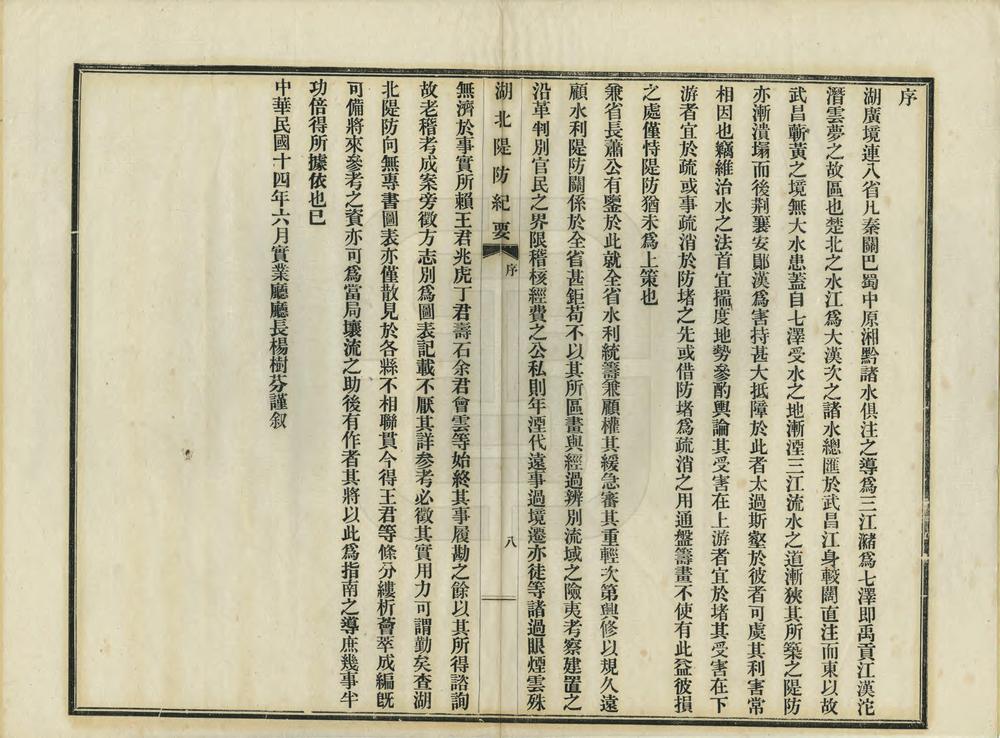 序
湖廣境連八省凡秦關巴蜀中原湘黔諸水俱注之導爲三江瀦爲七澤卽禹貢江漢沱
潛雲夢之故區也楚北之水江爲大漢次之諸水總匯於武昌江身較闊直注而東以故
武昌蘄黃之境無大水患蓋自七澤受水之地漸湮三江流水之道漸狹其所築之隄防
亦漸潰塌而後荆襄安鄖漢爲害持甚大抵障於此者太過斯壑於彼者可虞其利害常
相因也竊維治水之法首宜揣度地勢參酌輿論其受害在上游者宜於堵其受害在下
游者宜於疏或事疏消於防堵之先或借防堵爲疏消之用通盤籌畫不使有此益彼損
之處僅恃隄防猶未爲上策也
兼省長蕭公有鑒於此就全省水利統籌兼顧權其緩急審其重輕次第興修以規久遠
顧水利隄防關係於全省甚鉅苟不以其所區畫與經過辨別流域之險夷考察建置之
沿革判別官民之界限稽核經費之公私則年湮代遠事過境遷亦徒等諸過眼煙雲殊
湖北隄防紀要 序 八
無濟於事實所賴王君兆虎丁君壽石余君會雲等始終其事履勘之餘以其所得諮詢
故老稽考成案旁徵方志別爲圖表記載不厭其詳參考必徵其實用力可謂勤矣查湖
北隄防向無專書圖表亦僅散見於各縣不相聯貫今得王君等條分縷析薈萃成編旣
可備將來參考之資亦可爲當局壤流之助後有作者其將以此爲指南之導庶幾事半
功倍得所據依也已
中華民國十四年六月實業廳廳長楊樹芬謹叙